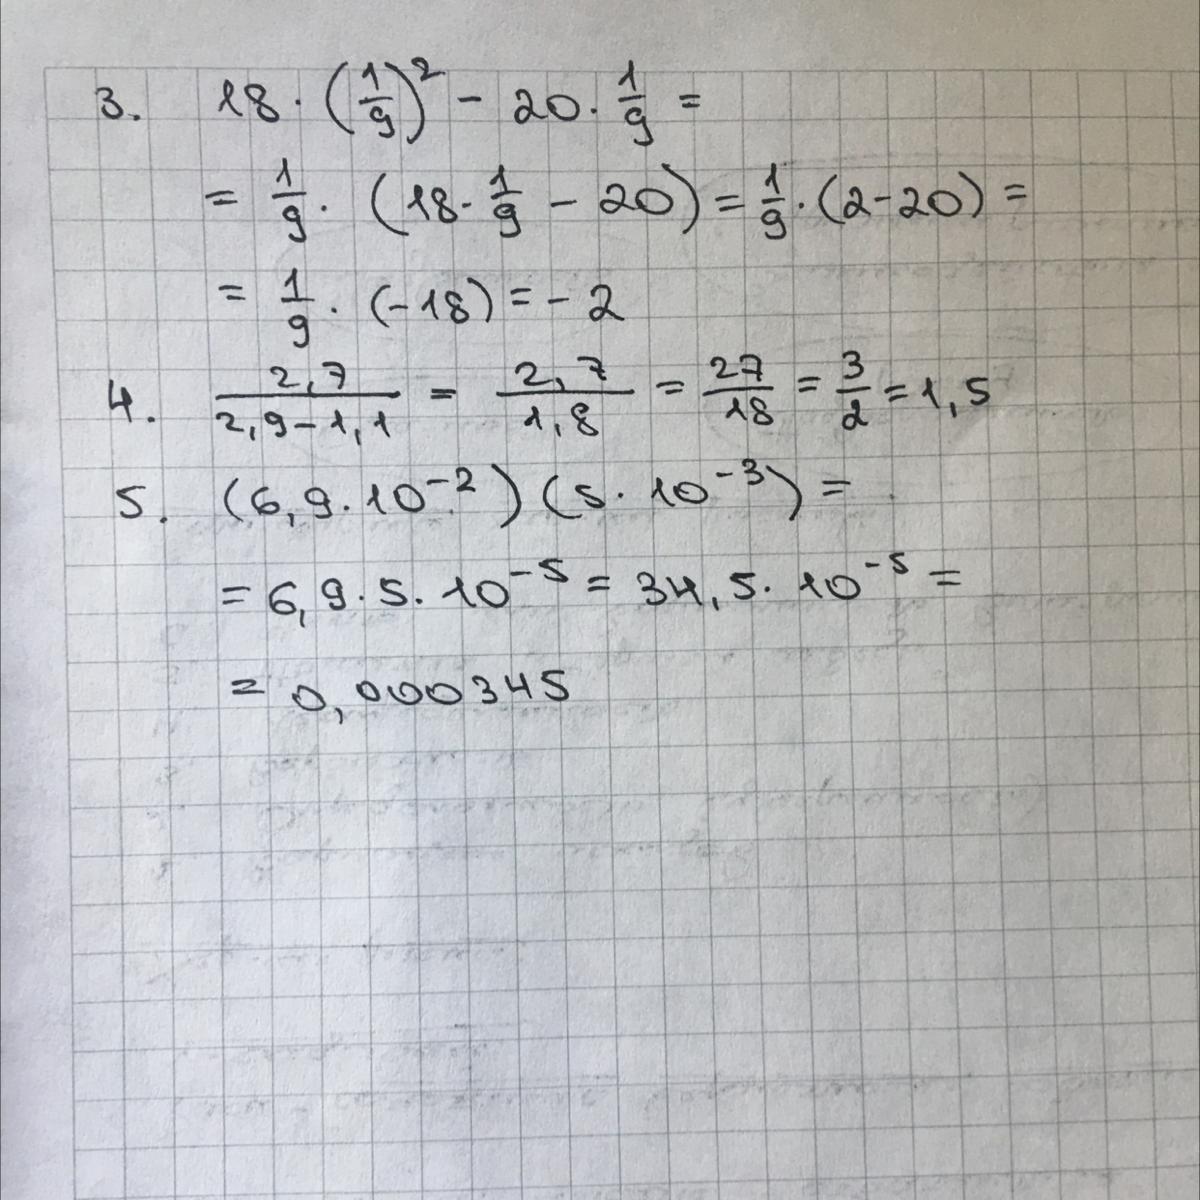 3. 18 · (1/9)² - 20 · 1/9 =
= 1/9 · (18 · 1/9 - 20) = 1/9 · (2 - 20) =
= 1/9 · (-18) = -2
4. 2,7/(2,9 - 1,1) = 2,7/1,8 = 27/18 = 3/2 = 1,5
5. (6,9 · 10⁻²) (5 · 10⁻³) =
= 6,9 · 5 · 10⁻⁵ = 34,5 · 10⁻⁵ =
= 0,000345